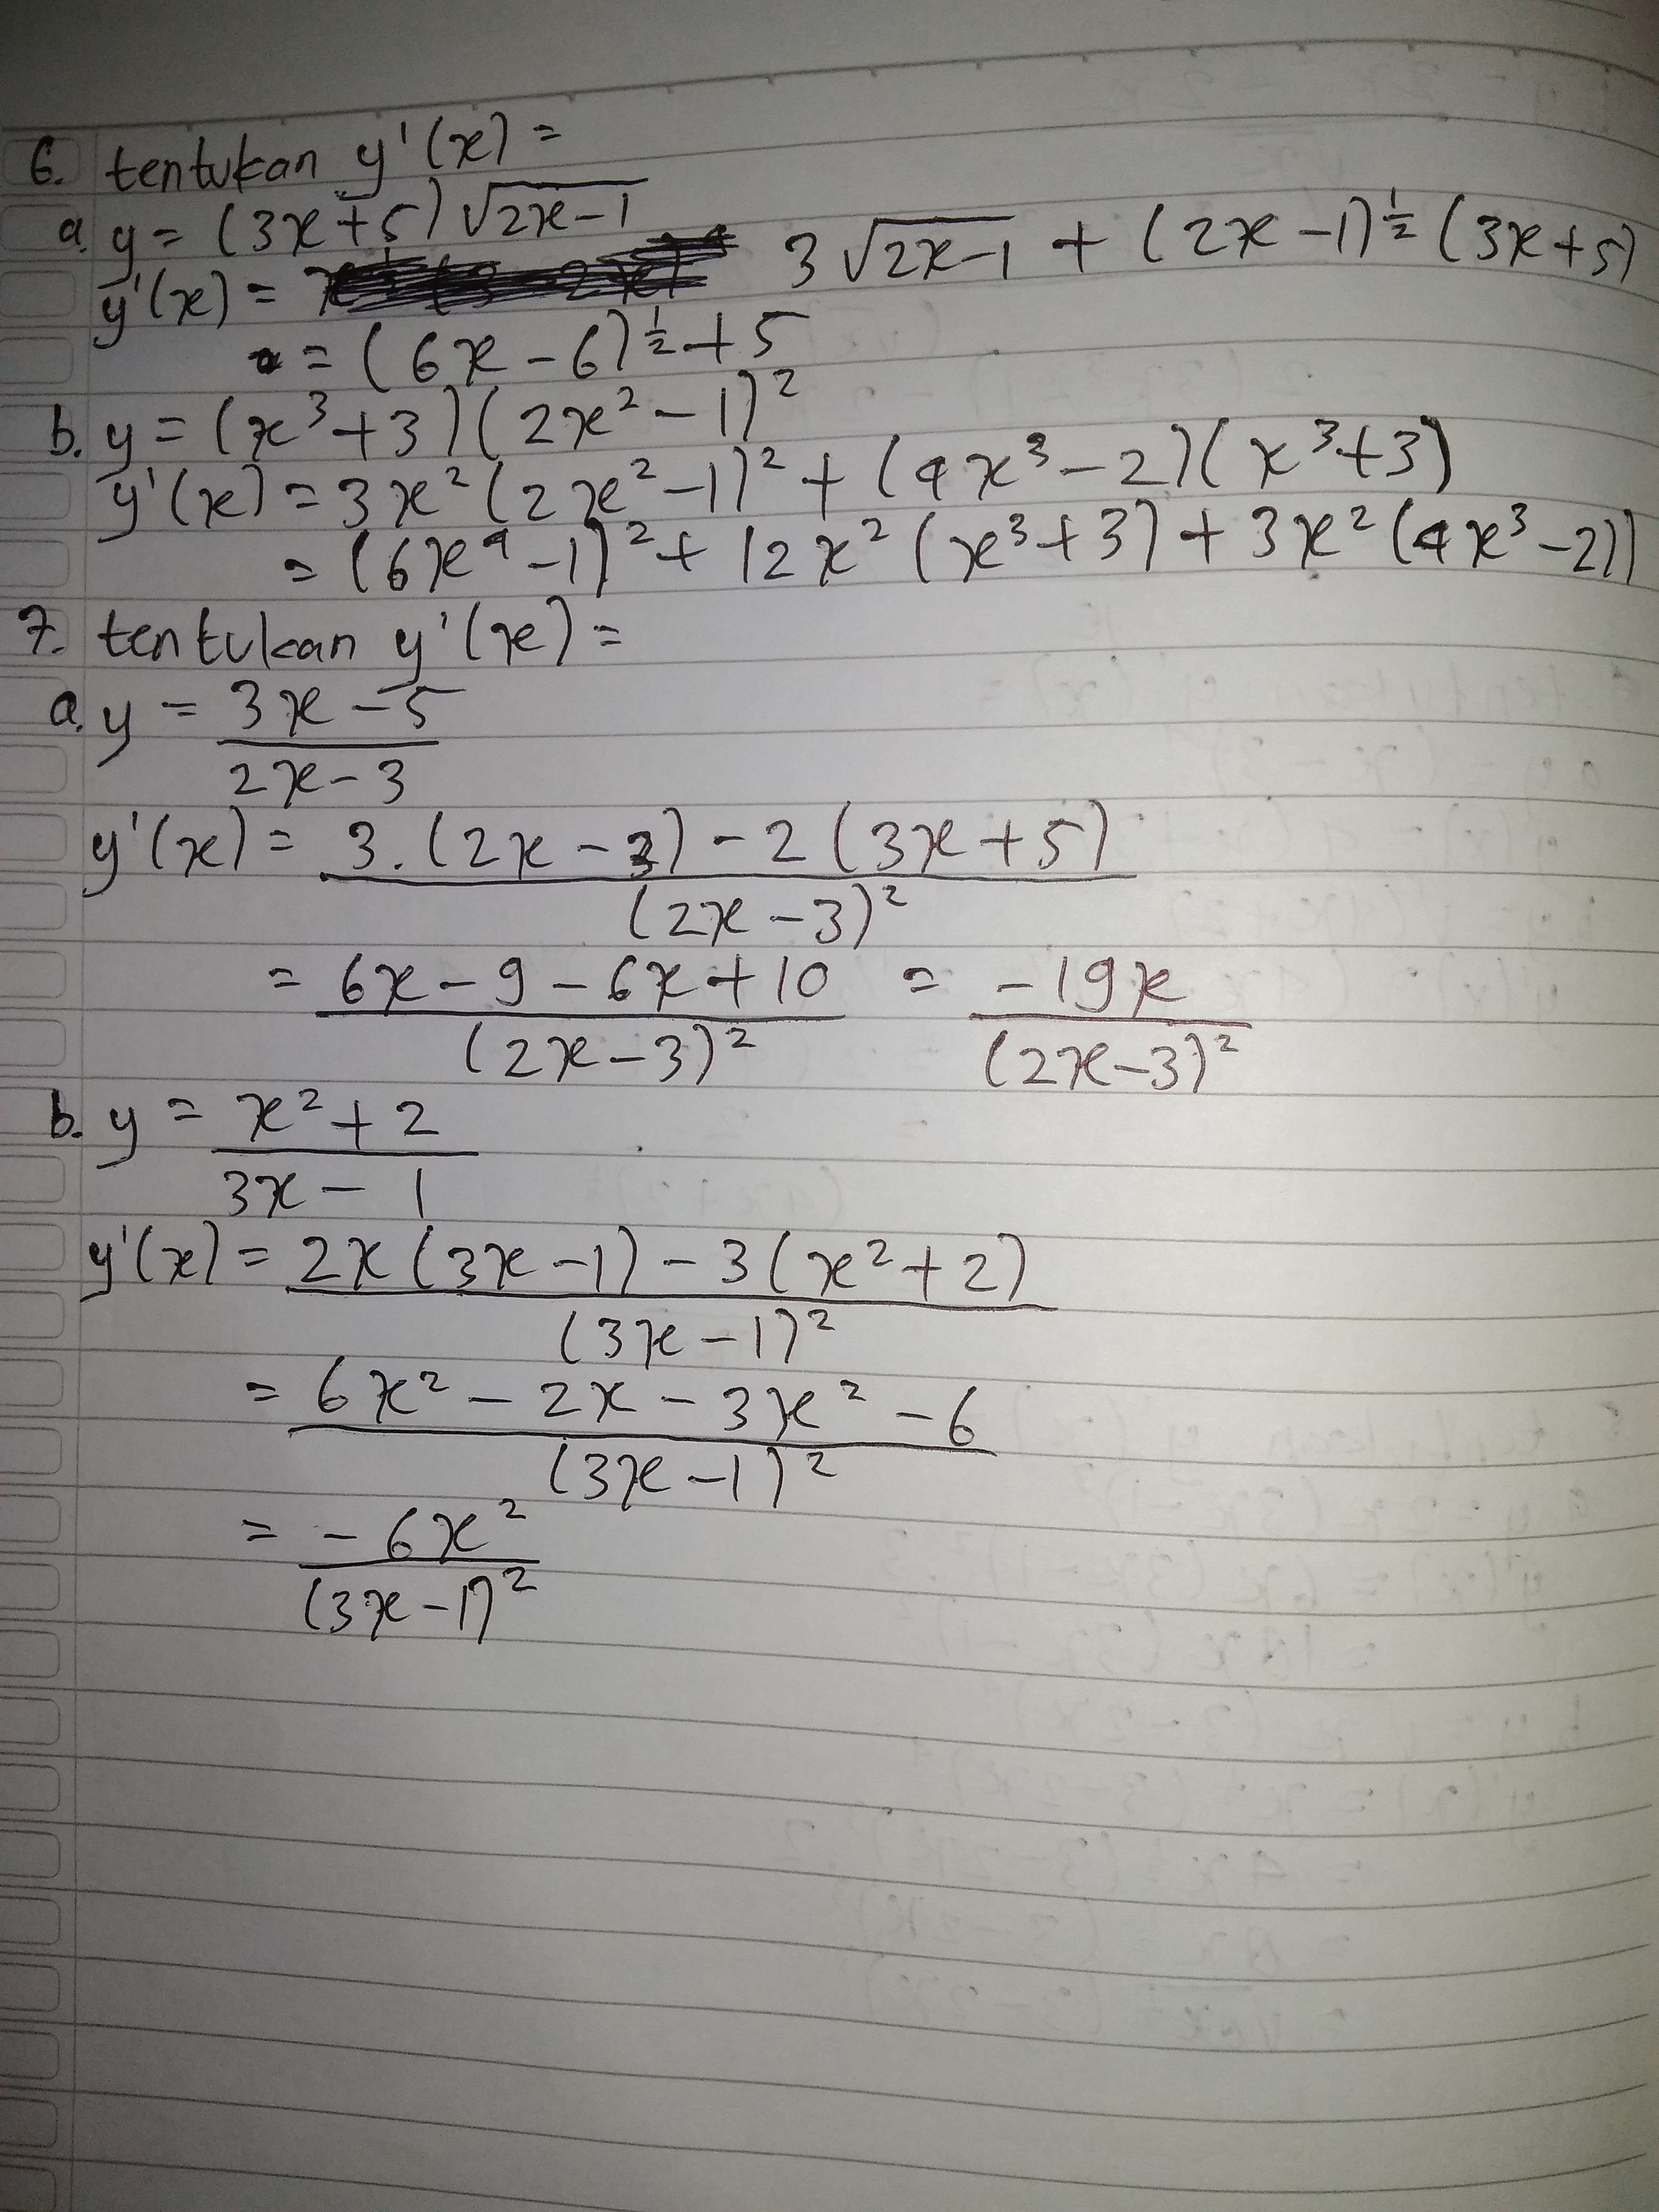 6. tentukan y'(x) =
a. y = (3x+5) √2x-1
y'(x) = 3 √2x-1 + (2x-1)^½ (3x+5)
= (6x-6)^½ + 5
b. y = (x³+3)(2x²-1)²
y'(x) = 3x² (2x²-1)² + (4x³-2)(x³+3)
= (6x⁴-1)² + 12x² (x³+3) + 3x² (4x³-2))
7. tentukan y'(x) =
a. y = 3x-5
2x-3
y'(x) = 3. (2x-3) - 2 (3x+5)
(2x-3)²
= 6x-9-6x+10 = -19x
(2x-3)² (2x-3)²
b. y = x²+2
3x-1
y'(x) = 2x (3x-1) - 3 (x²+2)
(3x-1)²
= 6x² - 2x - 3x² - 6
(3x-1)²
= -6x²
(3x-1)²